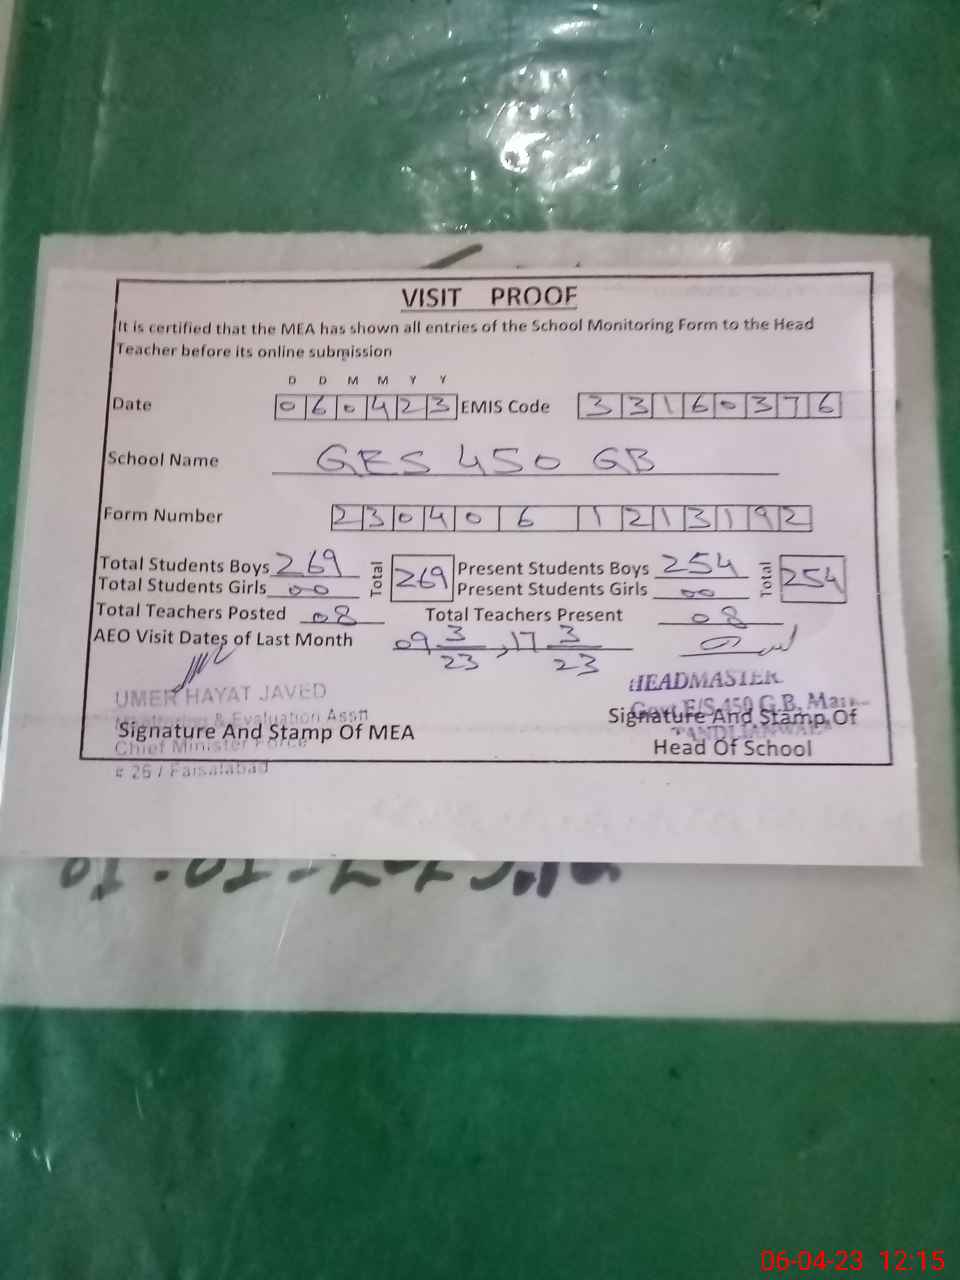 VISIT PROOF
It is certified that the MEA has shown all entries of the School Monitoring Form to the Head
Teacher before its online submission
D D M M Y Y
Date 060423 EMIS Code 33160376
School Name GES 450 GB
Form Number 230406 1213192
Total Students Boys 269 Total 269 Present Students Boys 254 Total 254
Total Students Girls 00 Present Students Girls 00
Total Teachers Posted 08 Total Teachers Present 08
AEO Visit Dates of Last Month 09 3/23, 17 3/23
UMER HAYAT JAVED
Monitoring & Evaluation Asstt
Chief Minister Force
# 26 / Faisalabad
Signature And Stamp Of MEA
HEADMASTER
Govt E/S 450 G.B,
Signature And Stamp Of
Head Of School
06-04-23 12:15